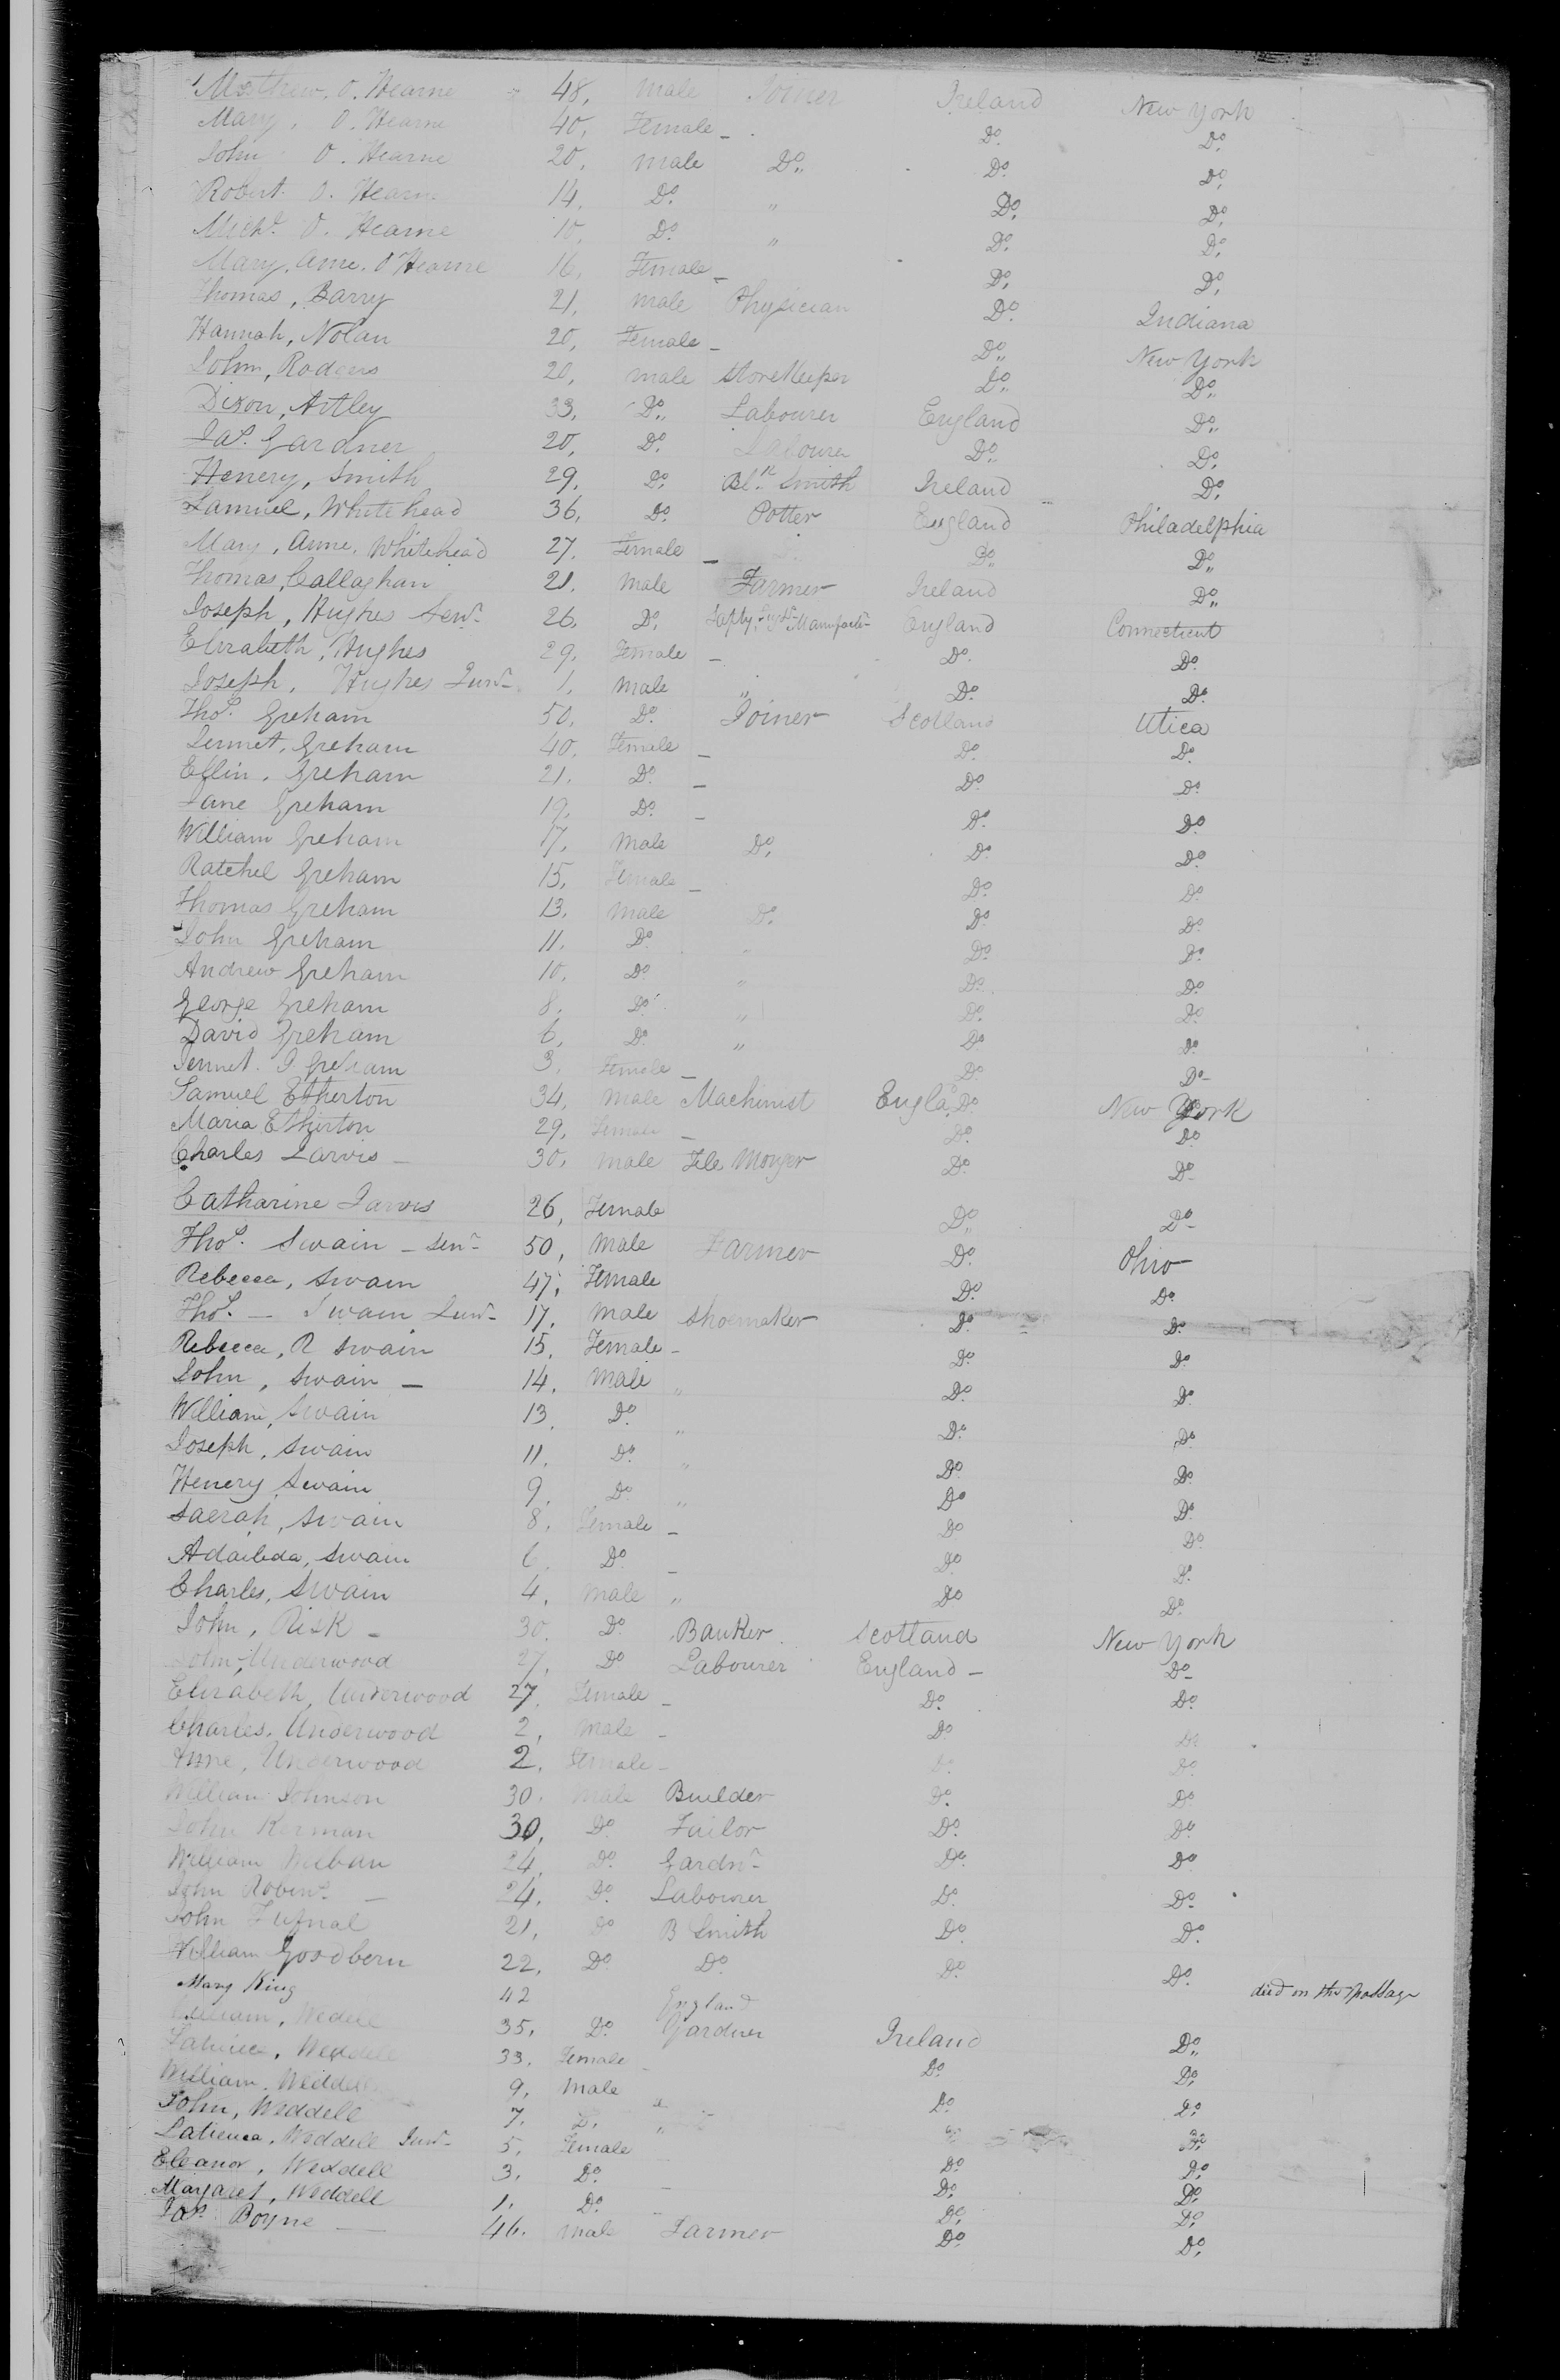 Mathew, O. Hearne 48, Male Joiner Ireland New York
Mary, O. Hearne 40, Female - Do. Do.
John O. Hearne 20, Male Do. Do. Do.
Robert O. Hearne 14, Do. " Do. Do.
Michl. O. Hearne 10, Do. " Do. Do.
Mary, Anne, O'Hearne 16, Female - Do. Do.
Thomas, Barry 21, Male Physician Do. Indiana
Hannah, Nolan 20, Female - Do. New York
John, Rodgers 20, Male Storekeeper Do. Do.
Dixon, Artley 33, Do. Labourer England Do.
Jas. Gardner 20, Do. Labourer Do. Do.
Henery, Smith 29, Do. Blk. Smith Ireland Do.
Samuel, Whitehead 36, Do. Potter England Philadelphia
Mary, Anne, Whitehead 27, Female - Do. Do.
Thomas, Callaghan 21, Male Farmer Ireland Do.
Joseph, Hughes Senr. 26, Do. England Connecticut
Elizabeth, Hughes 29, Female - Do. Do.
Joseph, Hughes Junr. 1, Male " Do. Do.
Thos. Greham 50, Do. Joiner Scotland Utica
Jennet, Greham 40, Female - Do. Do.
Effin, Greham 21, Do. - Do. Do.
Jane Greham 19, Do. - Do. Do.
William Greham 17, Male Do. Do. Do.
Ratchel Greham 15, Female - Do. Do.
Thomas Greham 13, Male Do. Do. Do.
John Greham 11, Do. " Do. Do.
Andrew Greham 10, Do. " Do. Do.
George Greham 8, Do. " Do. Do.
David Greham 6, Do. " Do. Do.
Jennet. J Greham 3, Female - Do. Do.
Samuel Etherton 34, Male Machinist Engla Do. New York
Maria Etherton 29, Female - Do. Do.
Charles Jarvis - 30, Male Fele Monger Do. Do.
Catharine Jarvis 26, Female Do. Do.
Thos. Swain - Senr. 50, Male Farmer Do. Ohio
Rebecca, Swain 47, Female Do. Do.
Thos. - Swain Junr. 17, Male Shoemaker Do. Do.
Rebecca, R Swain 15, Female - Do. Do.
John, Swain - 14, Male " Do. Do.
William, Swain 13, Do. " Do. Do.
Joseph, Swain 11, Do. " Do. Do.
Henery Swain 9, Do. " Do. Do.
Saerah, Swain 8, Female - Do. Do.
Adaileda, Swain 6, Do. - Do. Do.
Charles, Swain 4, Male " Do. Do.
John, Risk - 30, Do. Banker Scotland New York
John, Underwood 27, Do. Labourer England - Do.
Elizabeth, Underwood 27, Female - Do. Do.
Charles, Underwood 2, Male - Do. Do.
Anne, Underwood 2, Female - Do. Do.
William Johnson 30, Male Builder Do. Do.
John Kerman 30, Do. Tailor Do. Do.
William 24, Do. Gardnr. Do. Do.
John Robins - 24, Do. Labourer Do. Do.
John Tufnal 21, Do. B Smith Do. Do.
William Goodbern 22, Do. Do. Do. Do.
Mary King 42 England died on the passage
William, Wedell 35, Do. Gardner Ireland Do.
Weddell 33, Female - Do. Do.
William, Weddell 9, Male " Do. Do.
John, Weddell 7, Do. " Do. Do.
Weddell Junr. 5, Female Do. Do.
Eleanor, Weddell 3, Do. - Do. Do.
Margaret, Weddell 1, Do. - Do. Do.
Jas. Boyne - 46, Male Farmer Do. Do.